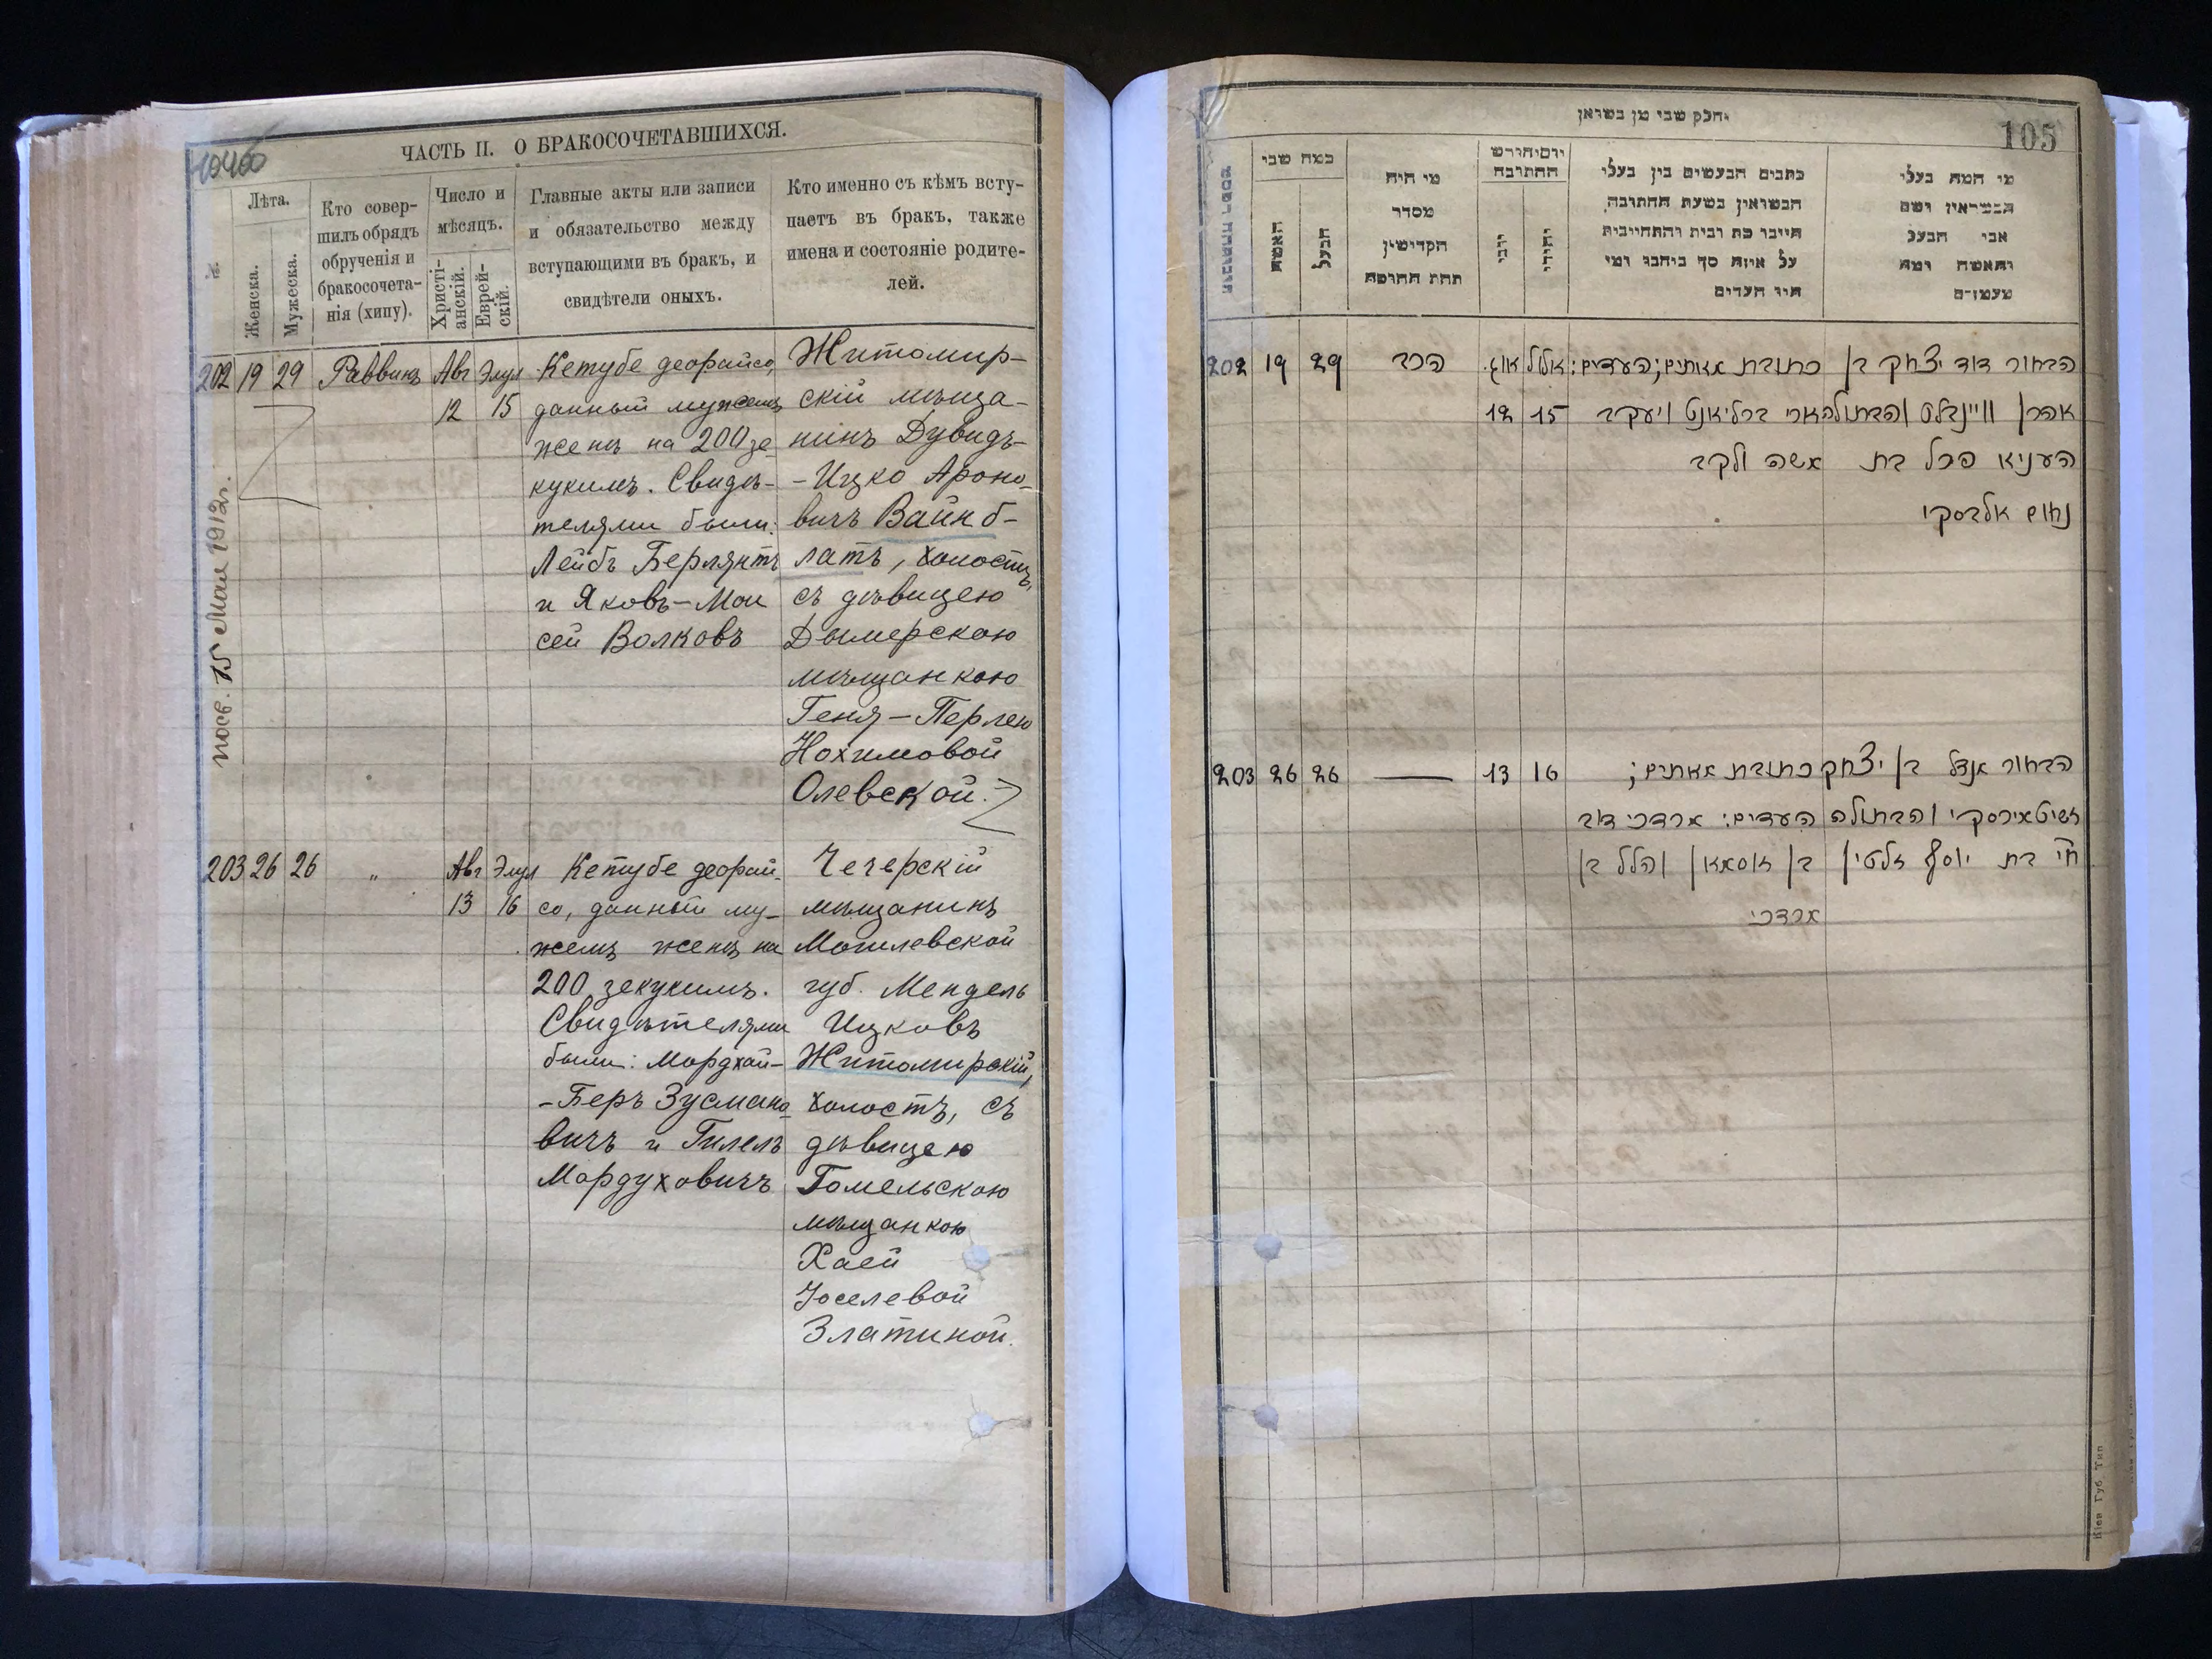 ЧАСТЬ II. О БРАКОСОЧЕТАВШИХСЯ.
№.
Лѣта.
Женска.
Мужеска.
Кто совер-
шилъ обрядъ
обрученія и
бракосочета-
нія (хипу).
Число и
мѣсяцъ.
Христі-
анскій.
Еврей-
скій.
Главные акты или записи
и обязательство между
вступающими въ бракъ, и
свидѣтели оныхъ.
Кто именно съ кѣмъ всту-
паетъ въ бракъ, также
имена и состояніе родите-
лей.
202 19 29 Раввинъ
Авг Элул
12 15
Кетубе деорайсо,
данный мужемъ
женѣ на 200 зе-
кукимъ. Свидѣ-
телями были:
Лейбъ Берлянтъ
и Яковъ-Мои
сей Волковъ
Житомир-
скій мѣща-
нинъ Дувидъ-
-Ицко Ароно-
вичъ Вайнб-
латъ, холостъ,
съ дѣвицею
Дымерскою
мѣщанкою
Геня-Перлею
Нохимовой
Олевской.
15 Мая 1912г.
203 26 26 „
Авг Элул
13 16
Кетубе деорай-
со, данный му-
жемъ женѣ на
200 зекукимъ.
Свидѣтелями
были: Мордхай-
-Беръ Зусмано-
вичъ и Гилелъ
Мордуховичъ
Чечерскій
мѣщанинъ
Могилевской
губ. Мендель
Ицковъ
Житомирскій,
холостъ, съ
дѣвицею
Гомельскою
мѣщанкою
Хаей
Іоселевой
Златиной.
105
וחלק שני מן נשואין
כמה שני
האשה
הבעל
מי היה
מסדר
הקדושין
תחת החופה
יום וחודש
החתונה
יהודי
כתבים הנעשים בין בעלי
הנשואין בשעת החתונה,
חייבו כח ובית והתחייבות
על איזה סך ביחבו ומי
היו העדים
מי המה בעלי
הנשואין ושם
אבי הבעל
והאשה ומה
מעמדם
202 19 29 הרב
אוג. אלול
12 15
כתובת מאתים; העדים:
ארי ברליאנט ויעקב
משה ולקב
הבחור דוד יצחק בן
אהרן וויינבלט והבתולה
העניא פרל בת
נחום אלבסקי
203 26 26 — 13 16
כתובת מאתים;
העדים: מרדכי דוב
בן זוסמאן והלל בן
מרדכי
הבחור מנדל בן יצחק
זשיטאמירסקי והבתולה
חי׳ בת יוסף זלטין
Кіев Губ Тип